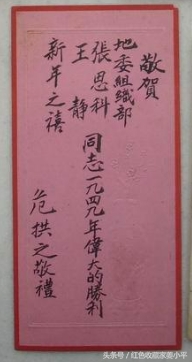 敬賀
地委組織部
張恩科
王靜
同志一九四九年偉大的勝利
新年之禧
危拱之敬禮
头条号／红色收藏家裴小平